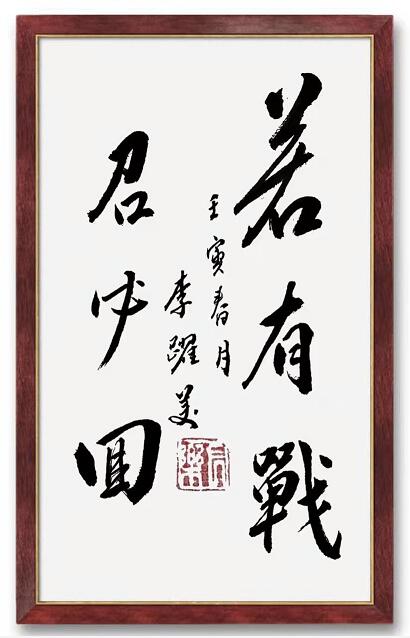 若有戰
召必回
壬寅春月
李躍美